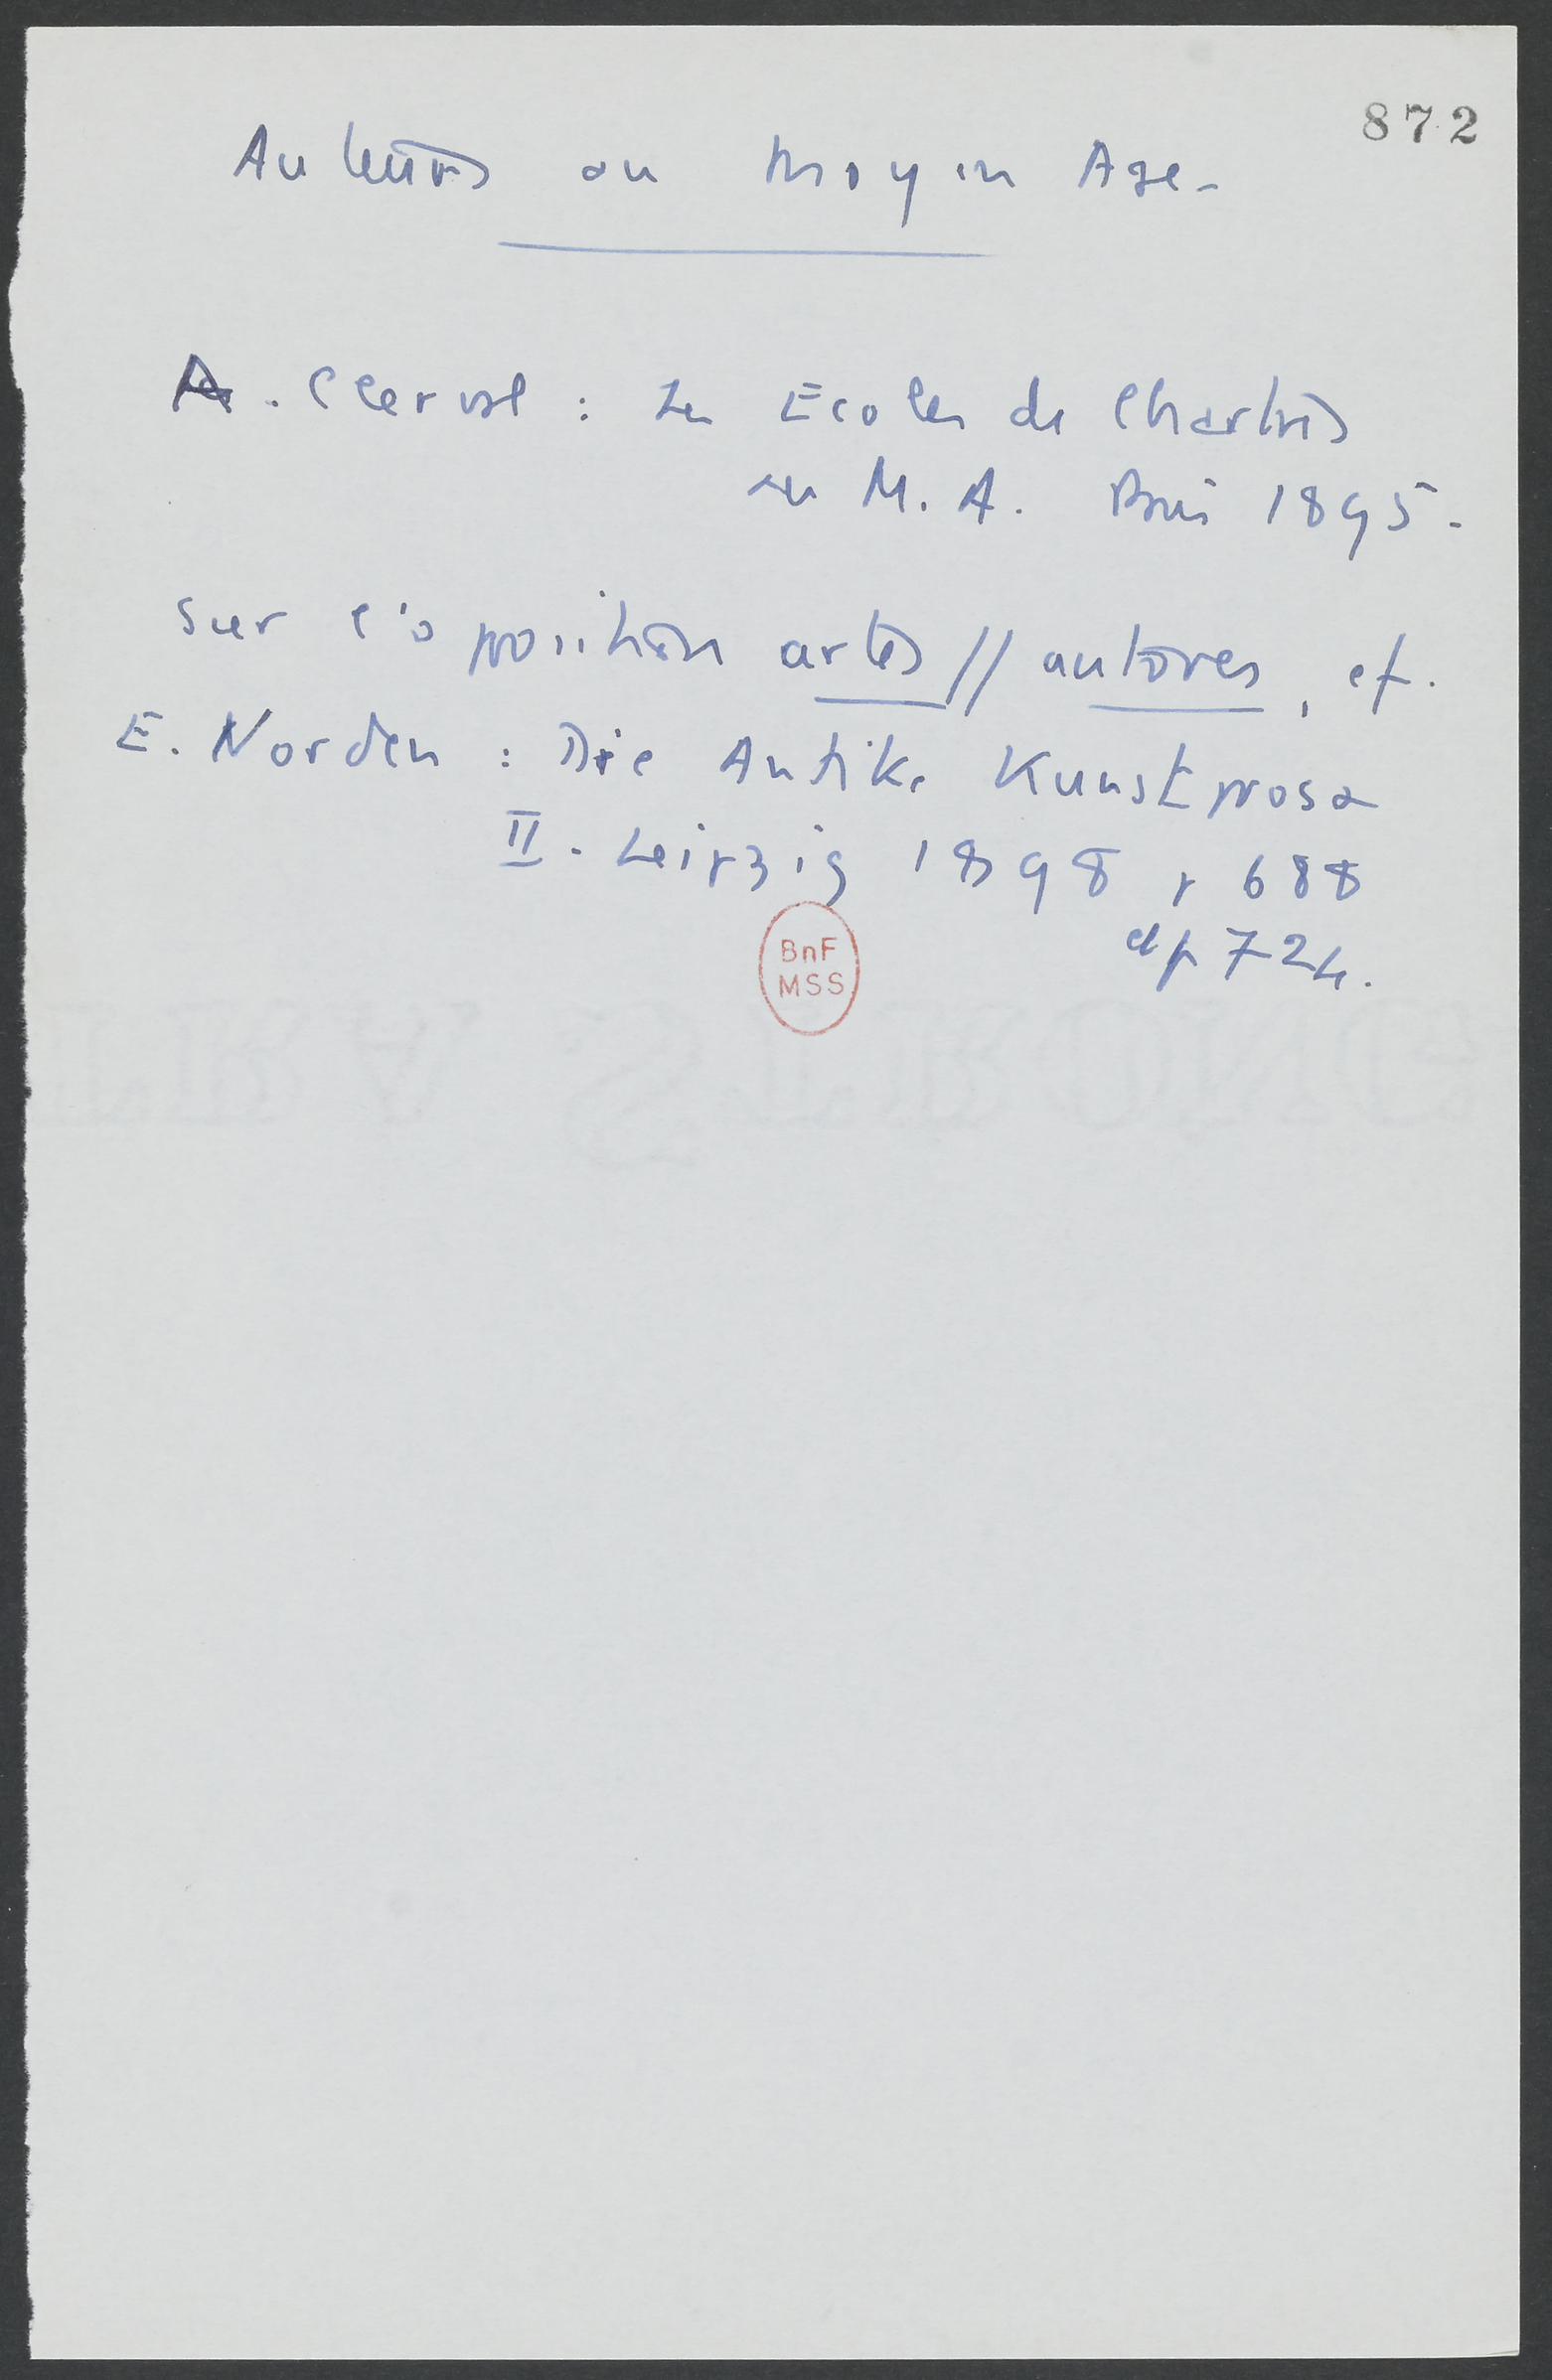 872
Auteurs au Moyen Age -
A. Clerval : Les Ecoles de Chartres
au M. A. Paris 1895 -
sur l'opposition artes // autores, cf.
E. Norden : Die Antike Kunstprosa
II - Leipzig 1898 p 688
et p 724.
BnF
MSS